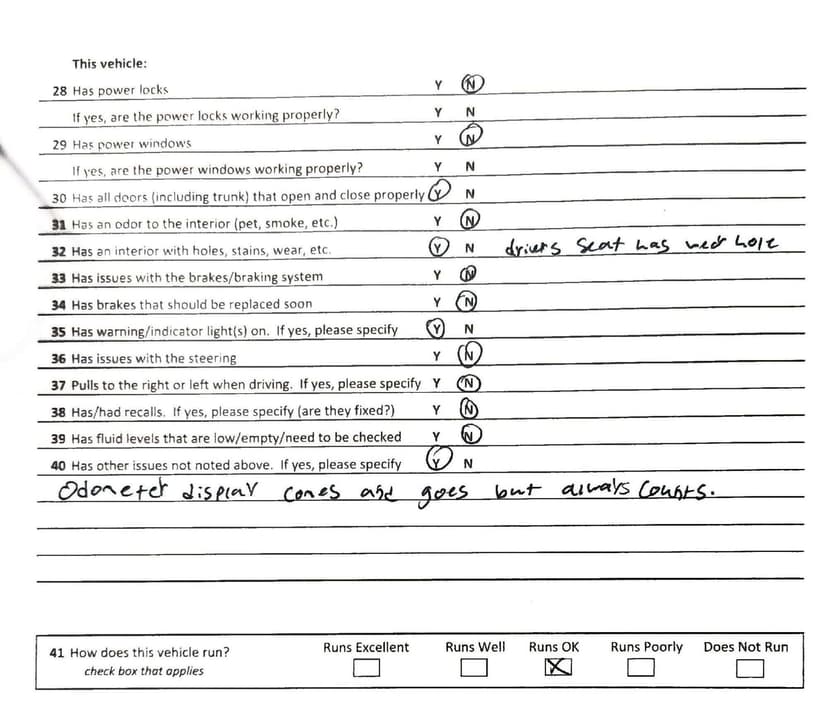 This vehicle:
28 Has power locks Y N
If yes, are the power locks working properly? Y N
29 Has power windows Y N
If yes, are the power windows working properly? Y N
30 Has all doors (including trunk) that open and close properly Y N
31 Has an odor to the interior (pet, smoke, etc.) Y N
32 Has an interior with holes, stains, wear, etc. Y N drivers seat has hole
33 Has issues with the brakes/braking system Y N
34 Has brakes that should be replaced soon Y N
35 Has warning/indicator light(s) on. If yes, please specify Y N
36 Has issues with the steering Y N
37 Pulls to the right or left when driving. If yes, please specify Y N
38 Has/had recalls. If yes, please specify (are they fixed?) Y N
39 Has fluid levels that are low/empty/need to be checked Y N
40 Has other issues not noted above. If yes, please specify Y N
Odometer display comes and goes but always counts.
41 How does this vehicle run? Runs Excellent Runs Well Runs OK Runs Poorly Does Not Run
check box that applies